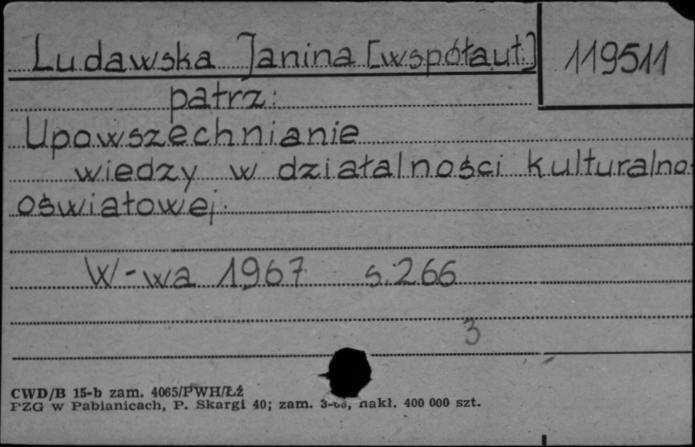 Ludawska Janina [współaut.] 119511
patrz:
Upowszechnianie
wiedzy w działalności kulturalno-
oświatowej.
W-wa 1967 s. 266
3
CWD/B 15-b zam. 4065/PWH/ŁŹ
PZG w Pabianicach, P. Skargi 40; zam. nakł. 400 000 szt.